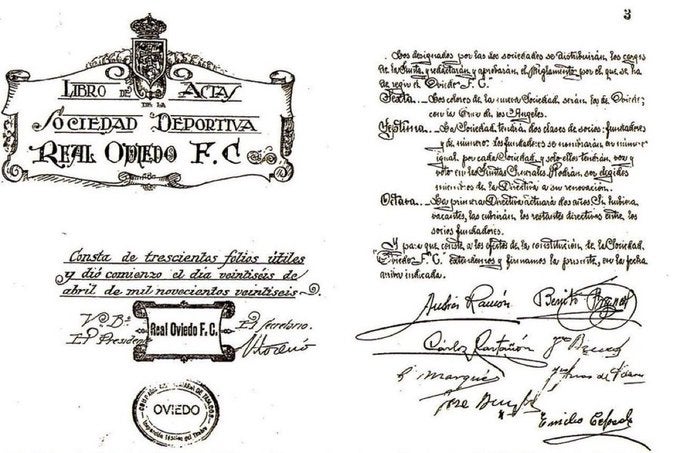 LIBRO DE ACTAS
DE LA
SOCIEDAD DEPORTIVA
REAL OVIEDO F.C.
Consta de trescientos folios útiles
y dió comienzo el día veintiséis de
abril de mil novecientos veintiseis.
Vº Bº
El Presidente
Real Oviedo F. C.
El Secretario
OVIEDO
3
Los designados por las dos sociedades se distribuirán los cargos
de la Junta, y redactarán y aprobarán el Reglamento por el que se ha
de regir el Oviedo F. C.
Sexta.- Los colores de la nueva Sociedad serán los de Oviedo;
con la Cruz de los Angeles.
Septima.- La Sociedad tendrá dos clases de socios: fundadores
y de número. Los fundadores se nombrarán en número
igual por cada Sociedad y solo ellos tendrán voz y
voto en las Juntas Generales. Podrán ser elegidos
miembros de la Directiva a su renovación.
Octava.- La primera Directiva actuará dos años. Si hubiera
vacantes, las cubrirán los restantes directivos entre los
socios fundadores.
Y para que conste, a los efectos de la constitución de la Sociedad
Oviedo F. C. extendemos y firmamos la presente, en la fecha
arriba indicada.
Ramón
Benito
Carlos
Marqués
José
Emilio